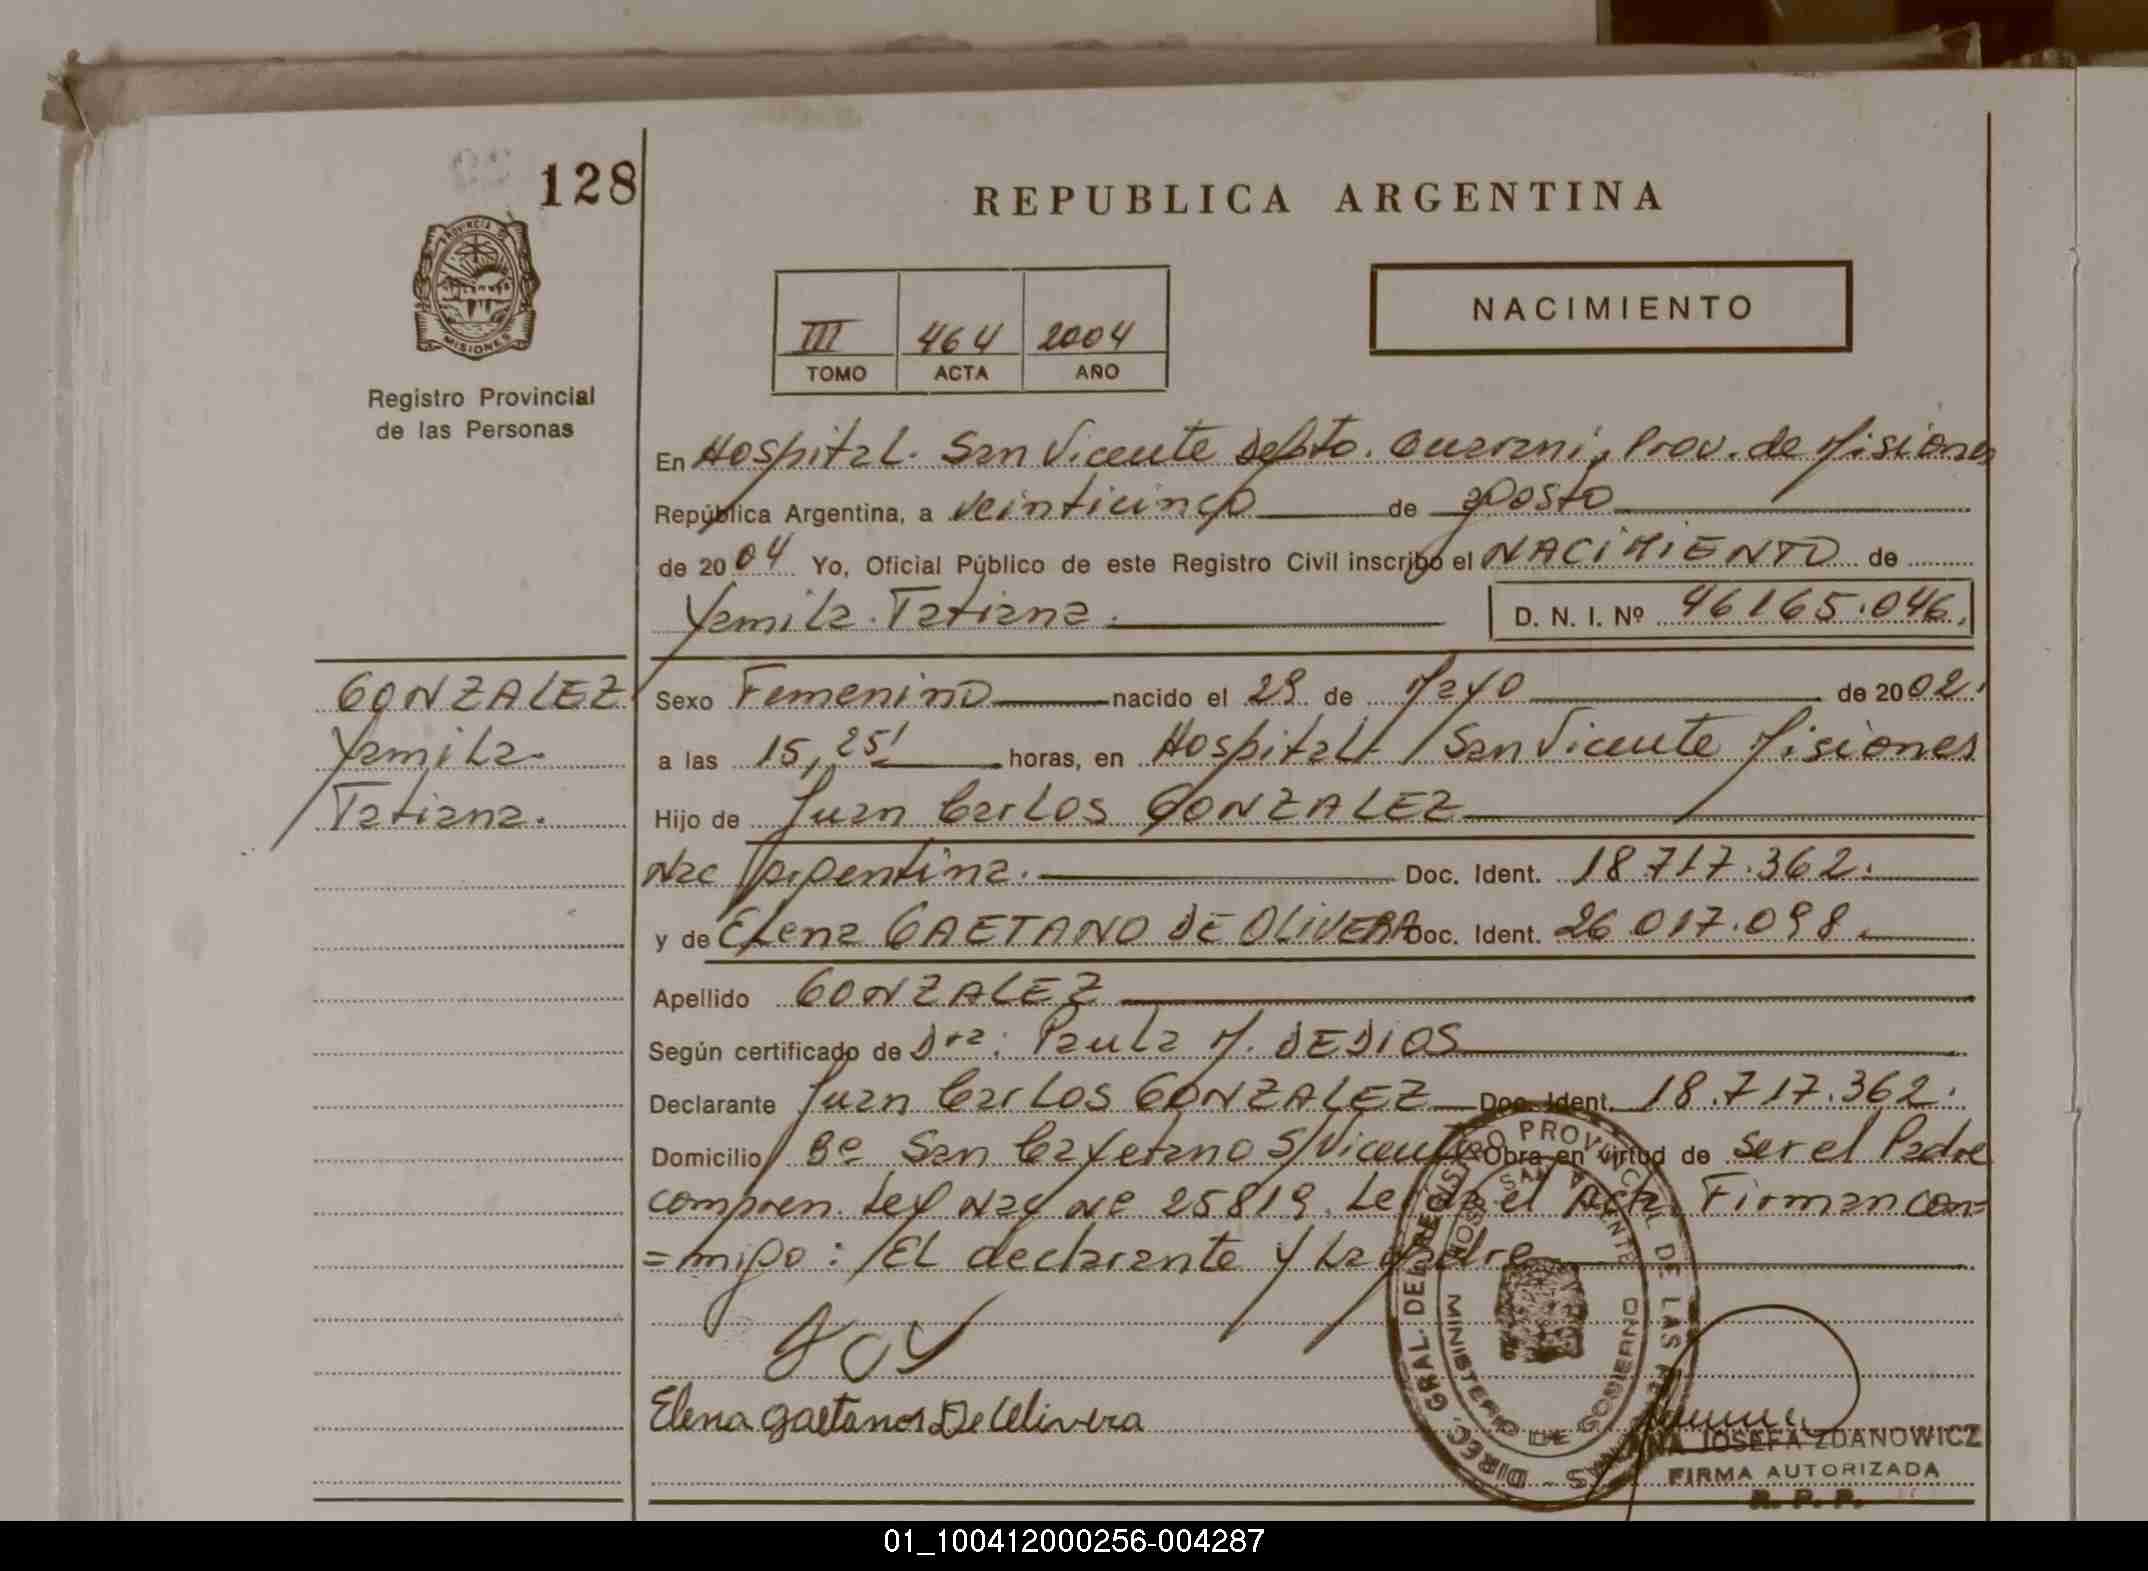 128
REPUBLICA ARGENTINA
PROVINCIA DE
MISIONES
Registro Provincial
de las Personas
NACIMIENTO
III 464 2004
TOMO ACTA AÑO
En Hospital. San Vicente Depto. Guarani, Prov. de Misiones
República Argentina, a veinticinco de agosto
de 2004 Yo, Oficial Público de este Registro Civil inscribo el NACIMIENTO de
Yamila Tatiana. D. N. I. Nº 46165.046.
GONZALEZ
Yamila
Tatiana.
Sexo Femenino nacido el 29 de Mayo de 2002.
a las 15,25' horas, en Hospital San Vicente Misiones
Hijo de Juan Carlos GONZALEZ
Nac Argentina. Doc. Ident. 18.717.362.
y de Elena GAETANO DE OLIVERA Doc. Ident. 26.017.098.
Apellido GONZALEZ
Según certificado de Dra: Paula M. DEDIOS
Declarante Juan Carlos GONZALEZ Doc. Ident. 18.717.362.
Domicilio Bº San Cayetano S/Vicente Obra en virtud de ser el Padre
compren. Ley Nac Nº 25819. Leida el Acta Firman con=
=migo: El declarante y la madre
Elena gaetanos De Olivera
DIREC. GRAL. DEL REGISTRO PROVINCIAL DE LAS PERSONAS
HOSP. SAN VICENTE
MINISTERIO DE GOBIERNO
ANA JOSEFA ZDANOWICZ
FIRMA AUTORIZADA
R. P. P.
01_100412000256-004287